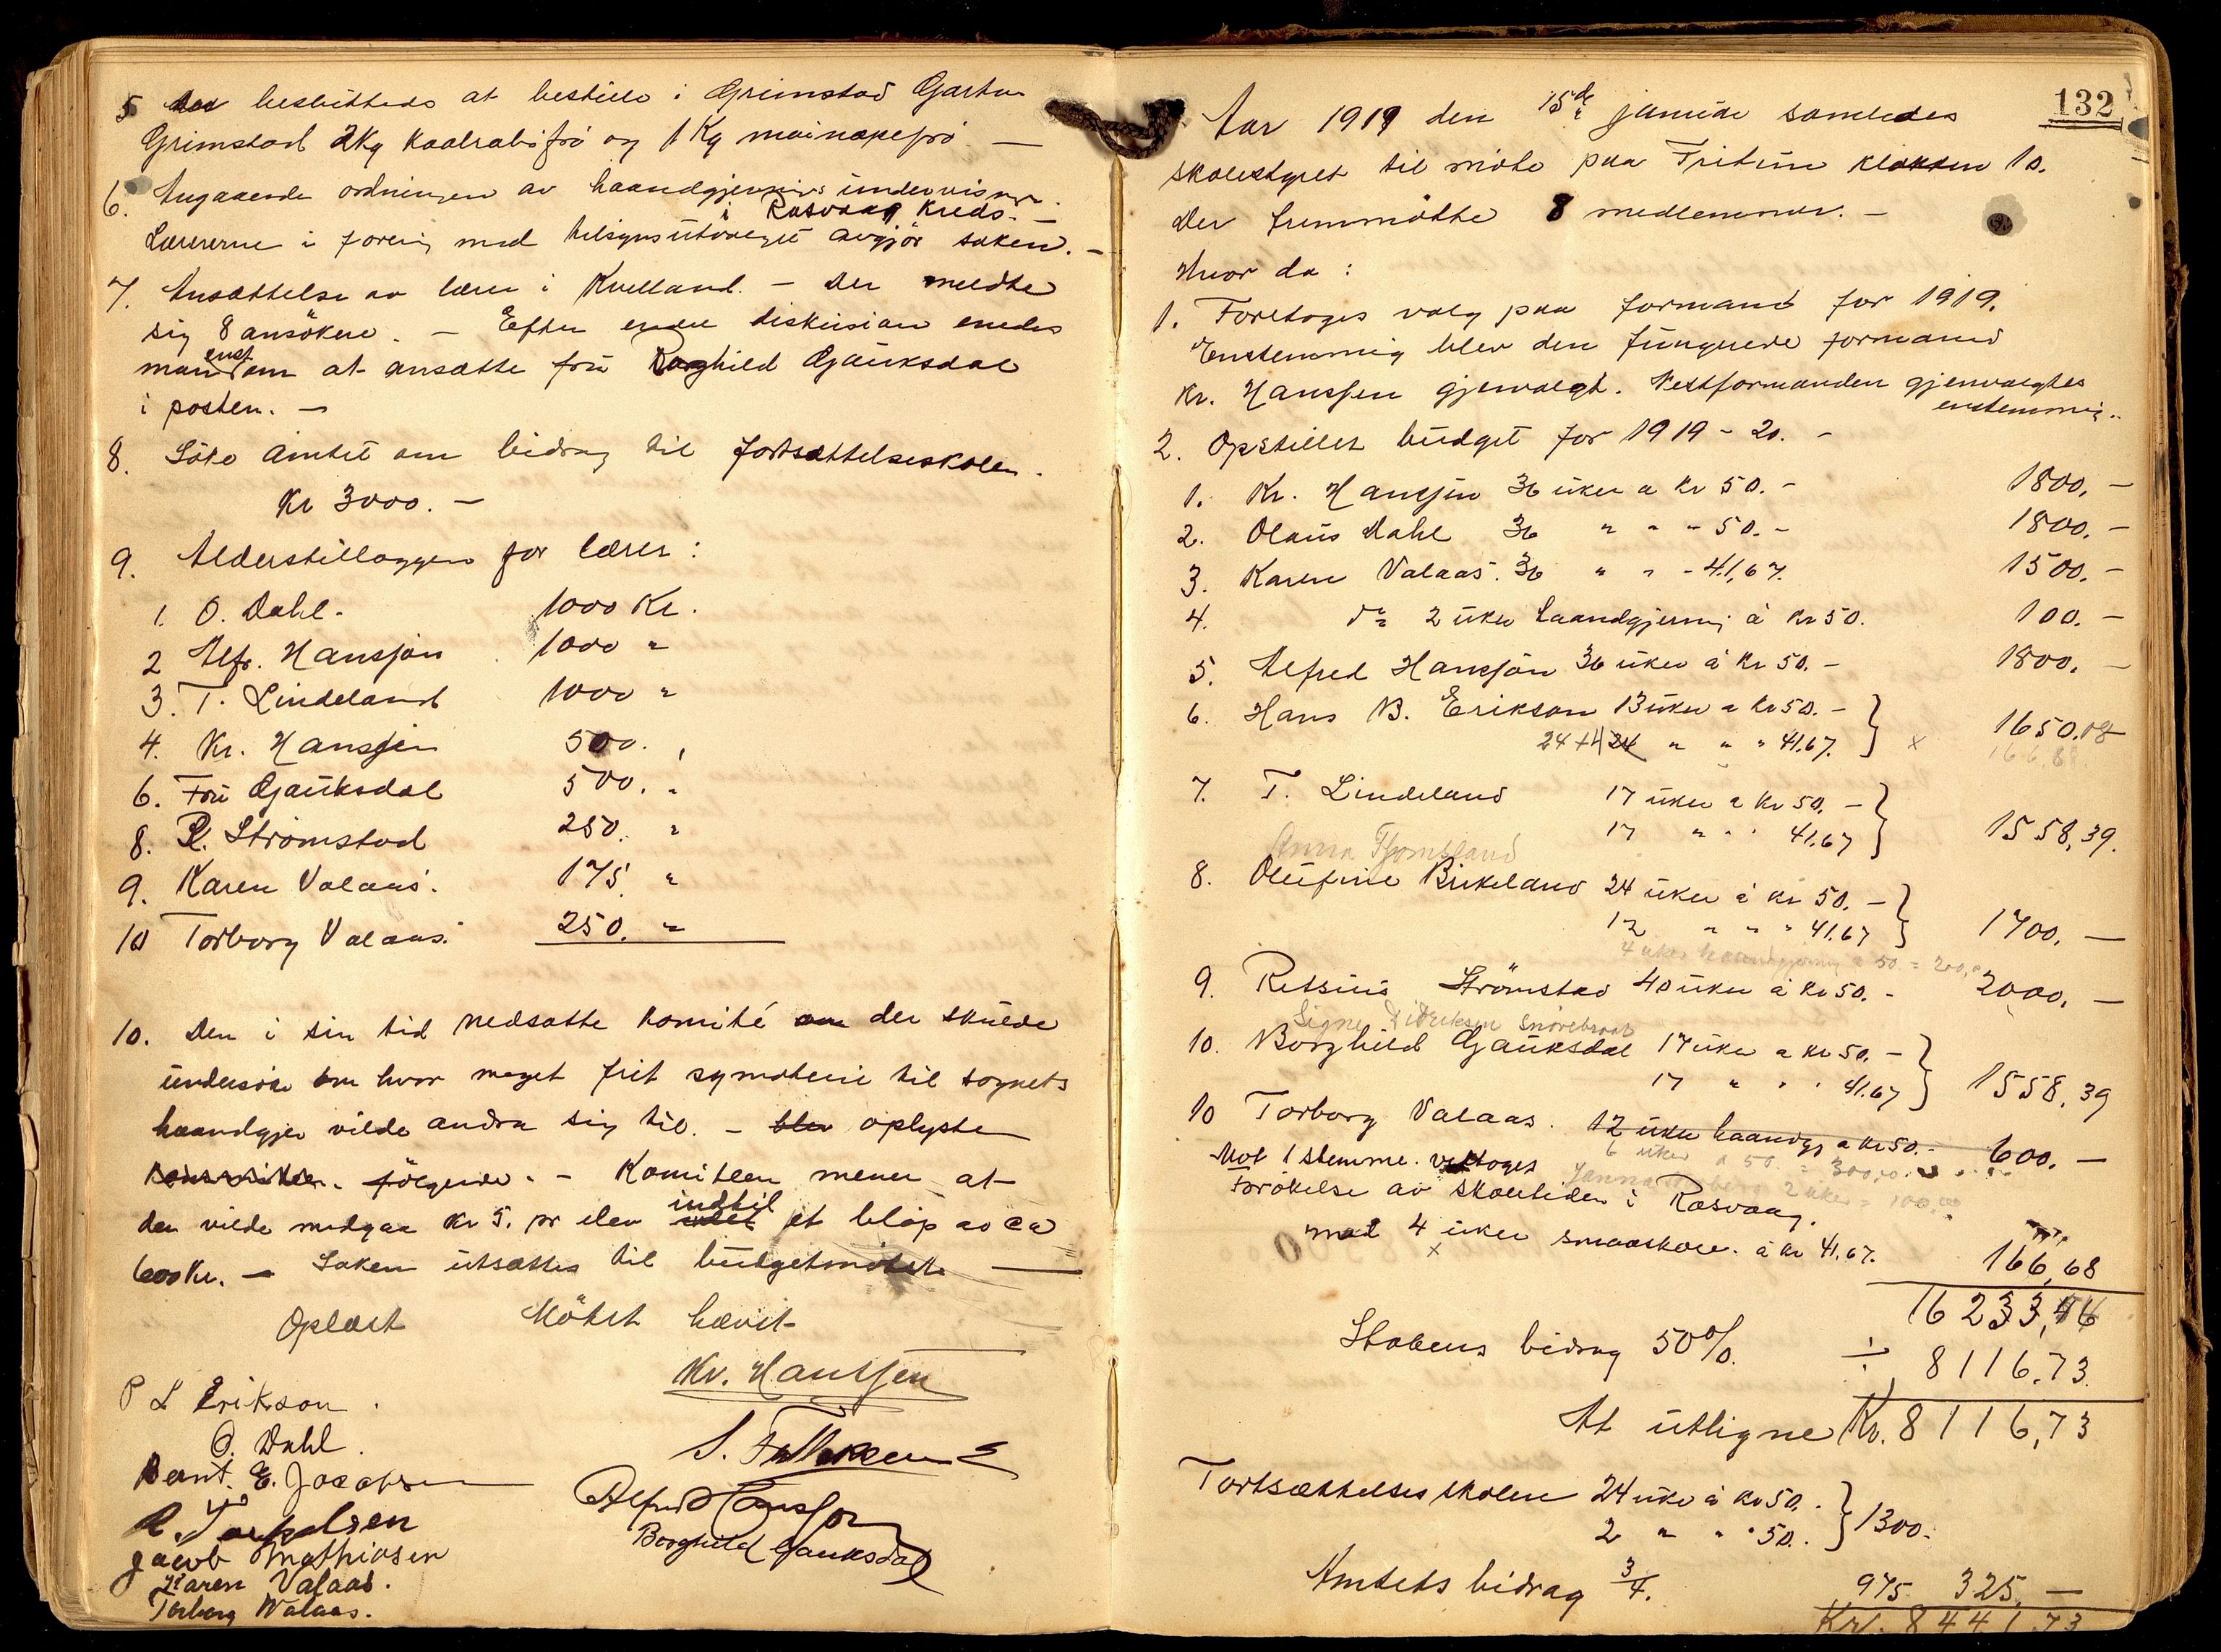 5 Det besluttedes at bestille i Grimstad Gartneri
Grimstad 2 Kg kaalrabifrö og 1 Kg mainæpefrö —
6. Angaaende ordningen av haandgjernings undervisning
i Rasvaag kreds. —
Lærerne i forening med tilsynsutvalget avgjör saken. —
7. Ansættelse av lærer i Kvelland. — Der meldte
sig 8 ansökere. — Efter endel diskusion enedes
enst
man om at ansætte fru Borghild Gauksdal
i posten. —
8. Söke Amtet om bidrag til fortsættelsesskolen.
Kr 3000. —
9. Alderstillæggene for lærer:
1. O. Dahl. 1000 Kr.
2 Alfr. Hanssön 1000 "
3. T. Lindeland 1000 "
4. Kr. Hanssen 500. "
6. Fru Gauksdal 500. "
8. R. Strömstad 250. "
9. Karen Valaas. 175 "
10 Torborg Valaas. 250. "
10. Den i sin tid nedsatte komité der skulde
undersöke hvor meget frit symateriel til sognets
haandgjer vilde andra sig til. — blev oplyste
følgende. — Komiteen mener at
indtil
den vilde medgaa kr 5. pr elev et belöp av ca
600 Kr. — Saken utsættes til budgetmötet —
Oplæst Mötet hævet
Kr. Hanssen
P L Erikson.
O. Dahl.
Bernt. E. Jacobsen
R. Torkelsen
Jacob Mathiasen
Karen Valaas.
Torborg Walaas.
Alfred Hanssön
Borghild Gauksdal
132
Aar 1919 den 15de januar samledes
skolestyret til möte paa Fritun klokken 10.
Der fremmötte 8 medlemmer. —
Hvor da:
1. Foretoges valg paa formand for 1919.
Enstemmig blev den fungerede formand
Kr. Hanssen gjenvalgt. Vestformanden gjenvalgtes
enstemmig.
2. Opstilles budget for 1919 - 20. —
1. Kr. Hanssen 36 uker a kr 50. — 1800. —
2. Olaus Dahl 36 " " " 50. — 1800. —
3. Karen Valaas. 36 " " - 41,67. 1500. —
4. do 2 uker haandgjerning á kr 50. 100. —
5. Alfred Hanssön 36 uker á kr 50. — 1800. —
6. Hans B. Erikson 13 uker a kr 50. — }
24 + 4 24 " " " 41.67. } x 1650.08
7. T. Lindeland 17 uker a kr 50. — }
17 " " " 41,67 } 1558,39.
Anna Tjomsland
8. Olufine Birkeland 24 uker á kr 50. — }
12 " " " 41.67 } 1700. —
4 uker haandgjerning a 50 = 200,00
9. Retsius Strömstad 40 uker á kr 50. - 2000. —
Signe Didriksen
10. Borghild Gauksdal 17 uker a kr 50. — }
17 " " " 41.67 } 1558,39
10 Torborg Valaas. 12 uker haandgj a kr 50. — 600. —
6 uker a 50. = 300,00
2 uker = 100,00
Mot 1 stemme. vedtoges
forökelse av skoletiden i Rasvaag.
med 4 uker smaaskole. á kr 41,67. 166,68
x
16233,46
Statens bidrag 50%. ÷ 8116.73
At utligne Kr. 8116,73
Fortsættelsesskolen 24 uker á kr 50. }
2 " " " 50. } 1300.
Amtets bidrag 3/4. 975 325. —
Kr. 8441.73